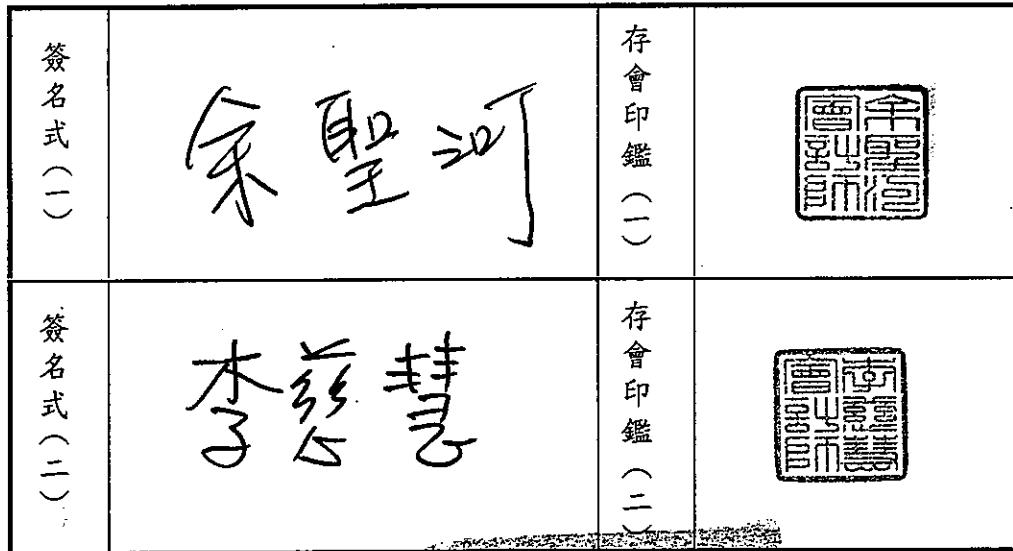 簽名式(一)
余聖河
存會印鑑(一)
余聖河
會計師
簽名式(二)
李慈慧
存會印鑑(二)
李慈慧
會計師